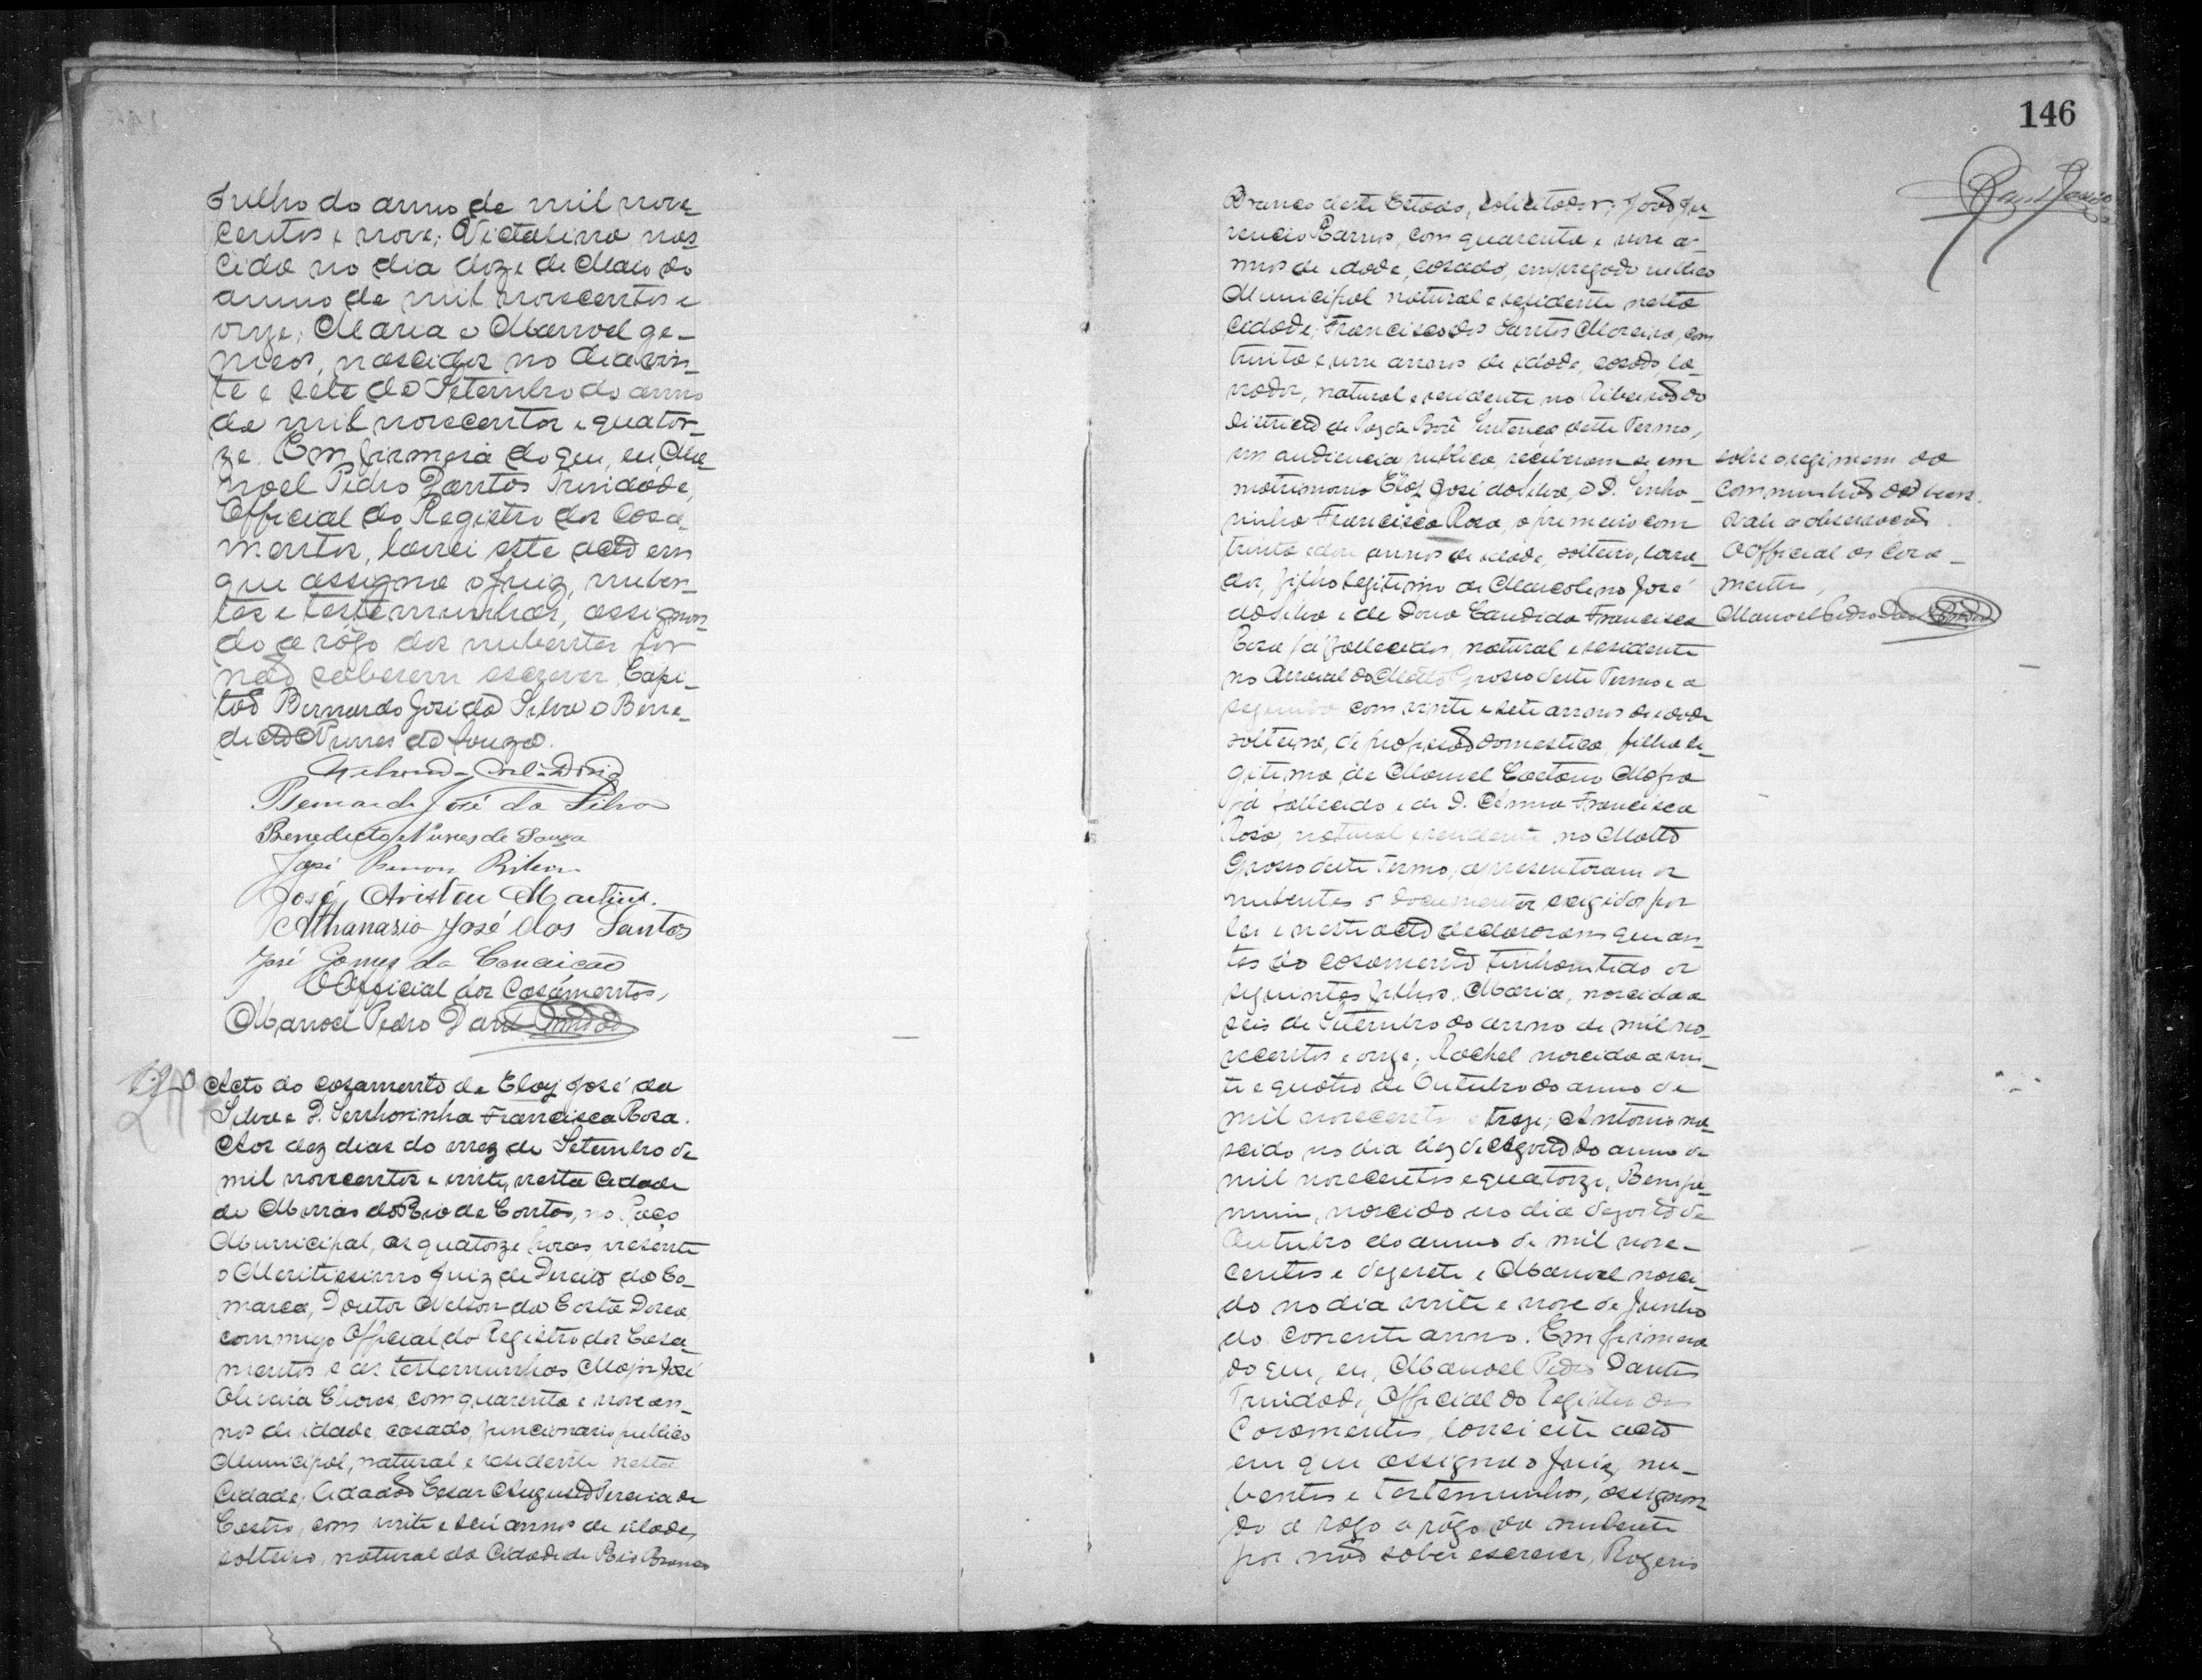 146
Julho do anno de mil nove
centos e nove; Victalina, nas
cida no dia doze de Maio do
anno de mil novecentos e
onze; Maria e Manoel ge-
meos, nascidos no dia vin-
te e sete de Setembro do anno
de mil novecentos e quator-
ze. Em firmesa do que, eu, Ma
noel Pedro Dantas Trindade,
Official do Registro dos Casa
mentos, lavrei este acto em
que assigna o Juiz, nuben-
tes e testemunhas, assignan-
do a rôgo dos nubentes por
não saberem escrever, Capi-
tão Bernardo José da Silva e Bene-
dicto Nunes de Souza.
Bernardo José da Silva
Benedicto Nunes de Souza
José Ribeiro
José Aristeu Martins.
Athanasio José dos Santos
José Gomes da Conceição
O Official dos Casamentos,
Manoel Pedro Dantas Trindade
Acto do casamento de Eloy José da
Silva e D. Senhorinha Francisca Rosa.
Aos dez dias do mez de Setembro de
mil novecentos e vinte, nesta Cidade
de Minas do Rio de Contas, no Paço
Municipal, as quatorze horas, presente
o Meritissimo Juiz de Direito da Co-
marca, Doutor Nelson da Costa Doria,
commigo Official do Registro dos Casa-
mentos e as testemunhas Major José
Oliveira Chaves, com quarenta e nove an-
nos de idade, casado, funcionario publico
Municipal, natural e residente nesta
Cidade; Cidadão Cesar Augusto Pereira de
Castro, com vinte e seis annos de idade,
solteiro, natural da Cidade de Rio Branco
Branco deste Estado, solicitador; João Ju
vencio Barros, com quarenta e nove a-
nnos de idade, casado, empregado publico
Municipal natural e residente nesta
Cidade; Francisco dos Santos Moreira, com
trinta e um annos de idade, casado, la-
vrador, natural e residente no Ribeirão do
Districto de Paz da Bôa Sentença deste Termo,
em audiencia publica, receberam-se em
matrimonio Eloy José da Silva e D. Senho-
rinha Francisca Rosa, o primeiro com
trinta e annos de idade, solteiro, lavra-
dor, filho legitimo de Marcolino José
da Silva e de Dona Candida Francisca
Rosa já fallecidos, natural e residente
no Arraial do Matto Grosso deste Termo e a
segunda com vinte e sete annos de idade
solteira, de profissão domestica, filha le-
gitima de Manoel Caetano Mafra
já fallecido e de D. Anna Francisca
Rosa, natural e residente no Matto
Grosso deste Termo, apresentaram os
nubentes os documentos exigidos por
lei e neste acto declararam que an-
tes do casamento tinham tido os
seguintes filhos, Maria, nascida a
seis de Setembro do anno de mil no-
vecentos e onze; Rachel nascida a vin-
te e quatro de Outubro do anno de
mil novecentos e treze; Antonio nas
cido no dia dez de Agosto do anno de
mil novecentos e quatorze, Benja-
mim, nascido no dia dezoito de
Outubro do anno de mil nove-
centos e dezesete e Manoel nasci-
do no dia vinte e nove de Junho
do corrente anno. Em firmesa
do que, eu, Manoel Pedro Dantas
Trindade, Official do Registro dos
Casamentos, lavrei este acto
em que assigna o Juiz, nu-
bentes e testemunhas, assignan-
do a rogo a rôgo da nubente
por não saber escrever, Rogerio
sobre o regimem da
communhão de bens.
Vale a observação.
O Official dos Casa-
mentos,
Manoel Pedro Dantas Trindade